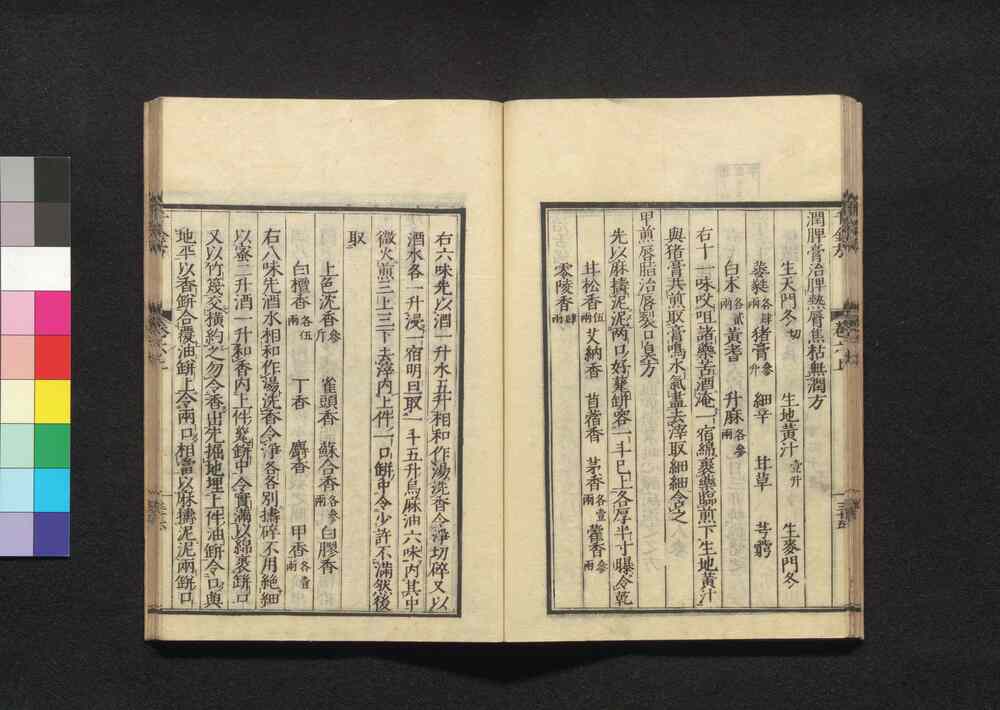 潤脾膏治脾熱脣焦枯無潤方
生天門冬切 生地黃汁壹升 生麥門冬
萎蕤各肆兩 猪膏參升 細辛 甘草 芎藭
白朮各貳兩 黃耆 升麻各參兩
右十一味㕮咀諸藥苦酒淹一宿綿裹藥臨煎下生地黃汁
與猪膏共煎取膏鳴水氣盡去滓取細細含之
甲煎脣脂治脣裂口臭方
先以麻擣泥泥兩口好甆餅容一斗已上各厚半寸曝令乾
甘松香伍兩 艾納香 苜蓿香 茅香各壹兩 藿香參兩
零陵香肆兩
右六味先以酒一升水五升相和作湯洗香令淨切碎又以
酒水各一升浸一宿明旦取一斗五升烏麻油六味內其中
微火煎三上三下去滓內上件一口餅中令少許不滿然後
取
上色沈香參斤 雀頭香 蘇合香各參兩 白膠香
白檀香各伍兩 丁香 麝香 甲香各壹兩
右八味先酒水相和作湯洗香令淨各各別擣碎不用絕細
以蜜二升酒一升和香內上件甆餅中令實滿以綿裹餅口
又以竹篾交橫約之勿令香出先掘地埋上件油餅令口與
地平以香餅合覆油餅上令兩口相當以麻擣泥泥兩餅口
千金方
卷六上
三十五